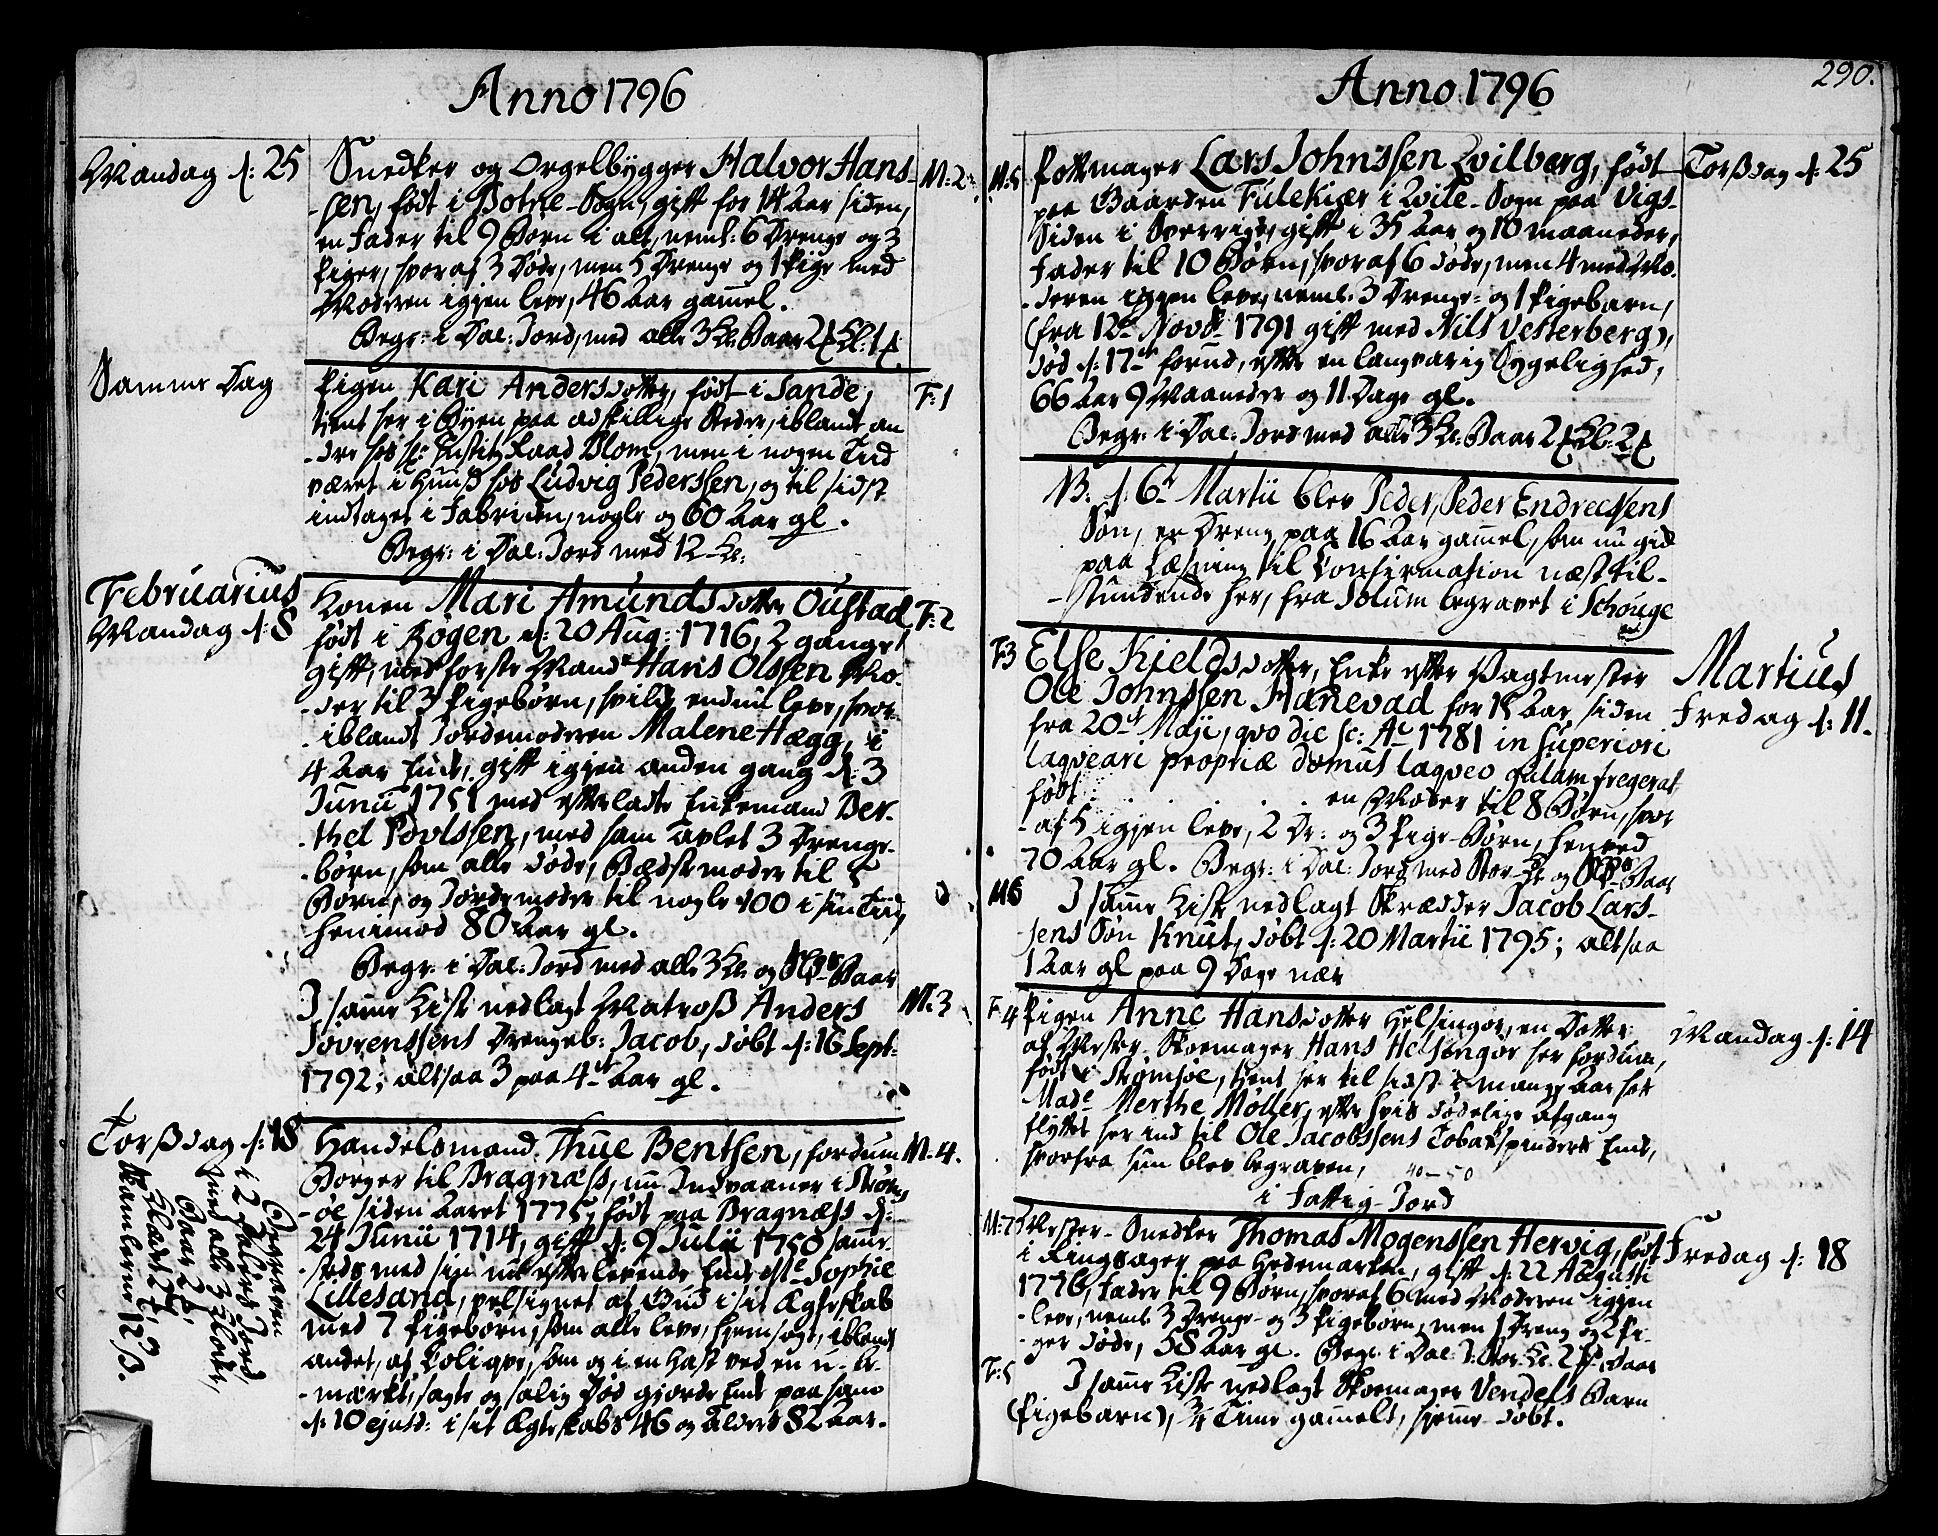 Anno 1796
Mandag d: 25
Snedker og Orgelbygger Halvor Hans-
M: 2
-sen, født i Botne-Sogn, gift for 14 Aar siden,
en Fader til 9 Børn i alt, neml: 6 Drenge og 3
Piger, hvoraf 3 døde, men 5 Drenge og 1 Pige med
Moderen igjen leve, 46 Aar gamel.
Begr: i Dal: Jord, med alle 3 Kl: Baar 2
Samme Dag
Pigen Kari Andersdotter, født i Sande,
F: 1
tient her i Byen paa adskillige Steder, iblandt an
-dre hos sl: Justitz Raad Blom, men i nogen Tiid
været i Huus hos Ludvig Pederssen, og til sidst
indtaget i Fabriqen, nogle og 60 Aar gl.
Begr: i Dal: Jord med 12 Kl:
Februarius
Mandag d: 8
Konen Mari Amundsdotter Oustad
F: 2
født i Røgen d: 20 Aug: 1716, 2 gange
gift, med første Mand Hans Olssen Mo-
-der til 3 Pigebørn, hvilke endnu leve, hvor-
-iblandt Jordemoderen Malene Hægg, i
4 Aar Enke, gift igjen anden gang d: 3
Junii 1751 med efterladte Enkemand Ber-
-thel Povlssen, med ham avlet 3 Drenge-
-børn, som alle døde, Bædstemoder til 5
Børn, og Jordemoder til nogle 100 i sin Tiid,
henimod 80 Aar gl.
Begr: i Dal: Jord med alle 3 Kl: og Baar
I samme Kiste nedlagt Matroß Anders
M: 3
Sövrenssens Drengeb: Jacob, døbt d: 16 Sept:
1792; altsaa 3 paa 4de Aar gl.
Torßdag d: 18
Handelsmand Thue Bentsen, fordum
M: 4.
Borger til Bragnæss, nu Indvaaner i Strøms
-øe siden Aaret 1775, født paa Bragnæss d:
24 Junii 1714, gift d: 9 Julii 1750 samme-
-steds med sin nu efterlevende Enke Mde Sophie
Lillesand, velsignet af Gud i sit Ægteskab
med 7 Pigebørn, som alle leve, hjemsøgt, iblandt
andet, af Colique, som og i en Hast ved en u-be-
-mærket, sagte og salig Død gjorde Ende paa ham
d: 10 ejusd: i sit Ægteskabs 46 og Alders 82 Aar.
Begraven
i Dal: Jord,
med alle 3 Klokr,
Baar 2
Klædet 2
Kamlerne 12 ß.
Anno 1796
290.
M: 5
Pottmager Lars Johnssen Qvilberg, født
Torßdag d: 25
paa Gaarden Fulekiær i Qvile-Sogn paa Vigs-
Siden i Sverrige, gift i 35 Aar og 10 Maaneder,
Fader til 10 Børn, hvoraf 6 døde, men 4 med Mo-
-deren igjen leve, neml: 3 Drenge- og 1 Pigebarn,
(fra 12te Novb: 1791 gift med Nils Vesterberg),
død d: 17de forud, efter en langvarig Sygelighed,
66 Aar 9 Maaneder og 11 Dage gl.
Begr: i Dal: Jord med alle 3 Kl: Baar 2
NB: d: 6te Martii blev Peder, Peder Endrecsens
Søn, en Dreng paa 16 Aar gammel, som nu gik
paa Læsning til Confirmation næst til-
-stundende her, fra Solum begravet i Schouge
F: 3
Else Kieldsdotter, Enke efter Vagtmester
Martius
Ole Johnssen Hanevad for 15 Aar siden
Fredag d: 11.
fra 20de Maji, qvo die sc: Ao 1781 in superiori
laqveari propriæ domus laqveo gulam fregerat
født . . . . en Moder til 8 Børn, hvor
-af 5 igjen leve, 2 Dr: og 3 Pige-Børn, henved
70 Aar gl. Begr: i Dal: Jord med Stor-Kl: og Baar
M 6
I samme Kiste nedlagt Skrædder Jacob Lars-
-sens Søn Knut, døbt d: 20 Martii 1795; altsaa
1 Aar gl paa 9 Dage nær
F: 4
Pigen Anne Hansdotter Helsingør, en Dotter
Mandag d: 14
af Mester Skoemager Hans Helsingør her fordum,
født i Strømsøe, tient her til sidst i mange Aar hos
Made Merthe Møller, efter hvis dødelige Afgang
flyttet her ind til Ole Jacobssens Tobakspinders Enke,
hvorfra hun blev begraven,
40-50
i Fattig-Jord
M: 7
Mester-Snedker Thomas Mogenssen Hervig, født
Fredag d: 18
i Ringsager paa Hedemarken, gift d: 22 Augusti
1776, Fader til 9 Børn, hvoraf 6 med Moderen igjen
-leve, neml: 3 Drenge- og 3 Pigebørn, men 1 Dreng og 2 Pi-
-ger døde, 58 Aar gl. Begr: i Dal: J: Stor-Kl: Baar
F: 5
I samme Kiste nedlagt Skoemager Vendels Barn
(Pigebarn), 3/4 Time gamelt, hjemme-døbt.